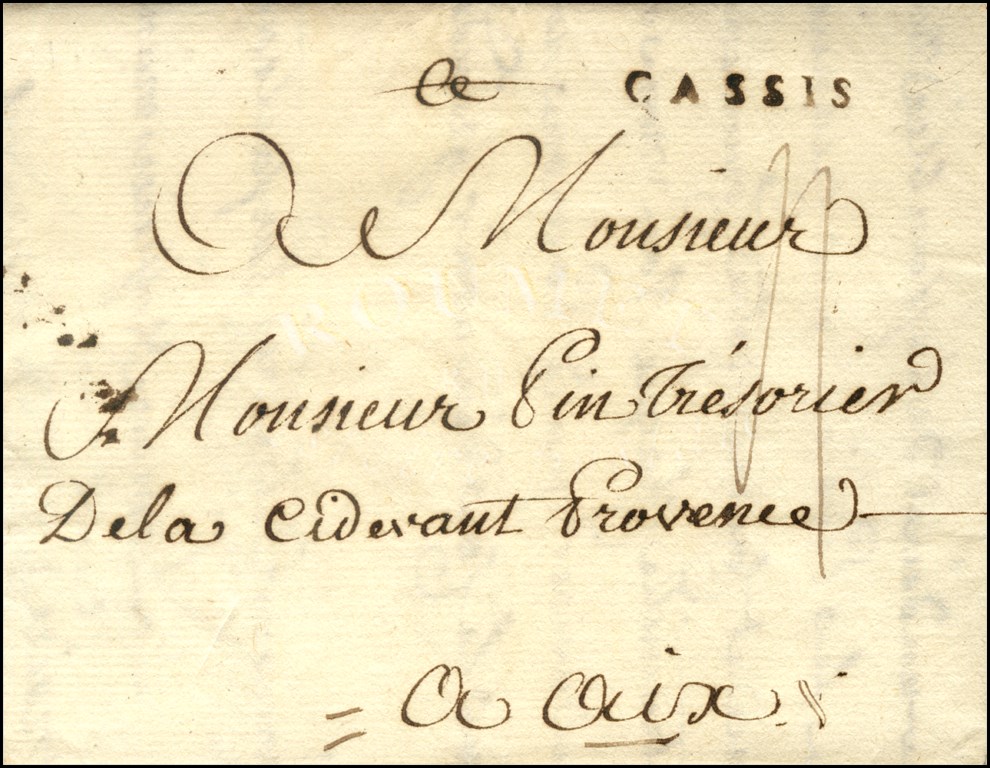 CASSIS
A Monsieur
Monsieur Pin trésorier
De la cidevant Provence
a aix